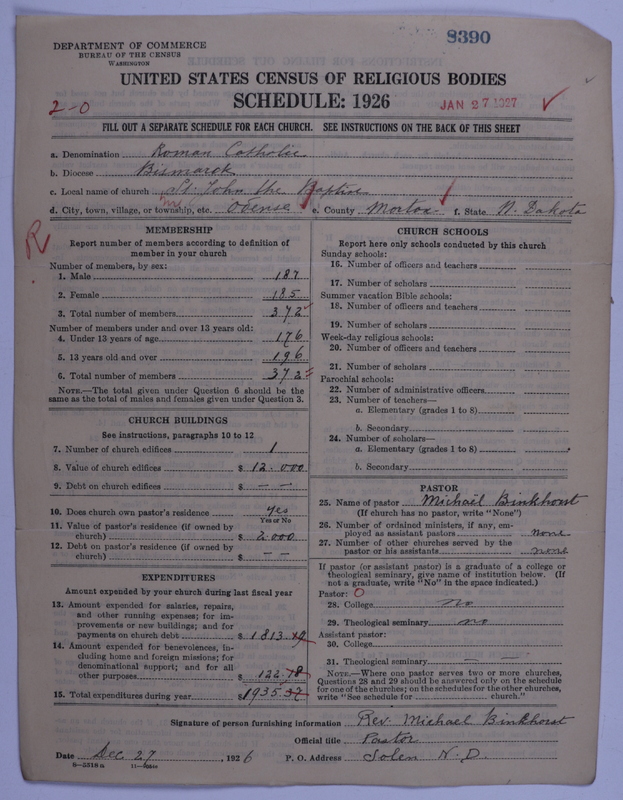 8390
DEPARTMENT OF COMMERCE
BUREAU OF THE CENSUS
WASHINGTON
UNITED STATES CENSUS OF RELIGIOUS BODIES
SCHEDULE: 1926
2-0
JAN 27 1927
FILL OUT A SEPARATE SCHEDULE FOR EACH CHURCH. SEE INSTRUCTIONS ON THE BACK OF THIS SHEET
a. Denomination Roman Catholic
b. Diocese Bismarck
c. Local name of church St. John the Baptist
d. City, town, village, or township, etc. Odense e. County Morton f. State N. Dakota
R
MEMBERSHIP
Report number of members according to definition of
member in your church
Number of members, by sex:
1. Male 187
2. Female 185
3. Total number of members 372
Number of members under and over 13 years old:
4. Under 13 years of age 176
5. 13 years old and over 196
6. Total number of members 372
NOTE.—The total given under Question 6 should be the
same as the total of males and females given under Question 3.
CHURCH BUILDINGS
See instructions, paragraphs 10 to 12
7. Number of church edifices 1
8. Value of church edifices $ 12.000
9. Debt on church edifices $ — —
10. Does church own pastor's residence yes
Yes or No
11. Value of pastor's residence (if owned by
church) $ 2.000
12. Debt on pastor's residence (if owned by
church) $ — —
EXPENDITURES
Amount expended by your church during last fiscal year
13. Amount expended for salaries, repairs,
and other running expenses; for im-
provements or new buildings; and for
payments on church debt $ 1813.19
14. Amount expended for benevolences, in-
cluding home and foreign missions; for
denominational support; and for all
other purposes $ 122.18
15. Total expenditures during year $ 1935.37
CHURCH SCHOOLS
Report here only schools conducted by this church
Sunday schools:
16. Number of officers and teachers
17. Number of scholars
Summer vacation Bible schools:
18. Number of officers and teachers
19. Number of scholars
Week-day religious schools:
20. Number of officers and teachers
21. Number of scholars
Parochial schools:
22. Number of administrative officers
23. Number of teachers—
a. Elementary (grades 1 to 8)
b. Secondary
24. Number of scholars—
a. Elementary (grades 1 to 8)
b. Secondary
PASTOR
25. Name of pastor Michael Binkhorst
(If church has no pastor, write "None")
26. Number of ordained ministers, if any, em-
ployed as assistant pastors none
27. Number of other churches served by the
pastor or his assistants none
If pastor (or assistant pastor) is a graduate of a college or
theological seminary, give name of institution below. (If
not a graduate, write "No" in the space indicated.)
Pastor: O
28. College no
29. Theological seminary no
Assistant pastor:
30. College
31. Theological seminary — —
NOTE.—Where one pastor serves two or more churches,
Questions 28 and 29 should be answered only on the schedule
for one of the churches; on the schedules for the other churches,
write "See schedule for church."
Signature of person furnishing information Rev. Michael Binkhorst
Official title Pastor
Date Dec 27, 1926 P. O. Address Solen N.D.
8—5318a